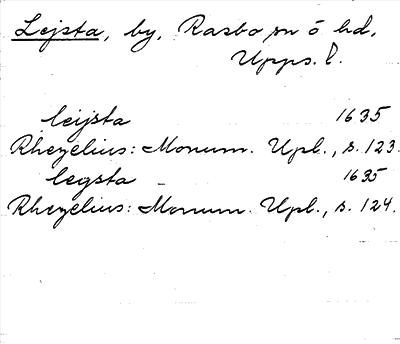 Lejsta, by, Rasbo sn o hd,
Upps. l.
leijsta 1635
Rhezelius: Monum. Upl., s. 123.
legsta 1635
Rhezelius: Monum. Upl., s. 124.